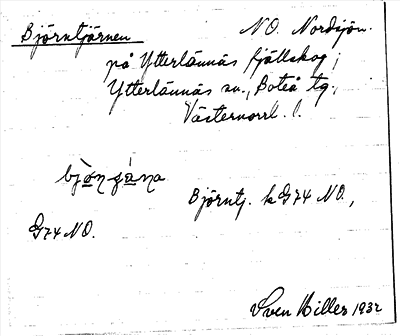 Björntjärnen NO. Nordsjön.
på Ytterlännäs fjällskog;
Ytterlännäs sn., Boteå tg.,
Västernorrl. l.
Björntj. k G74 NO.,
G74 NO.
Sven Hillex 1932